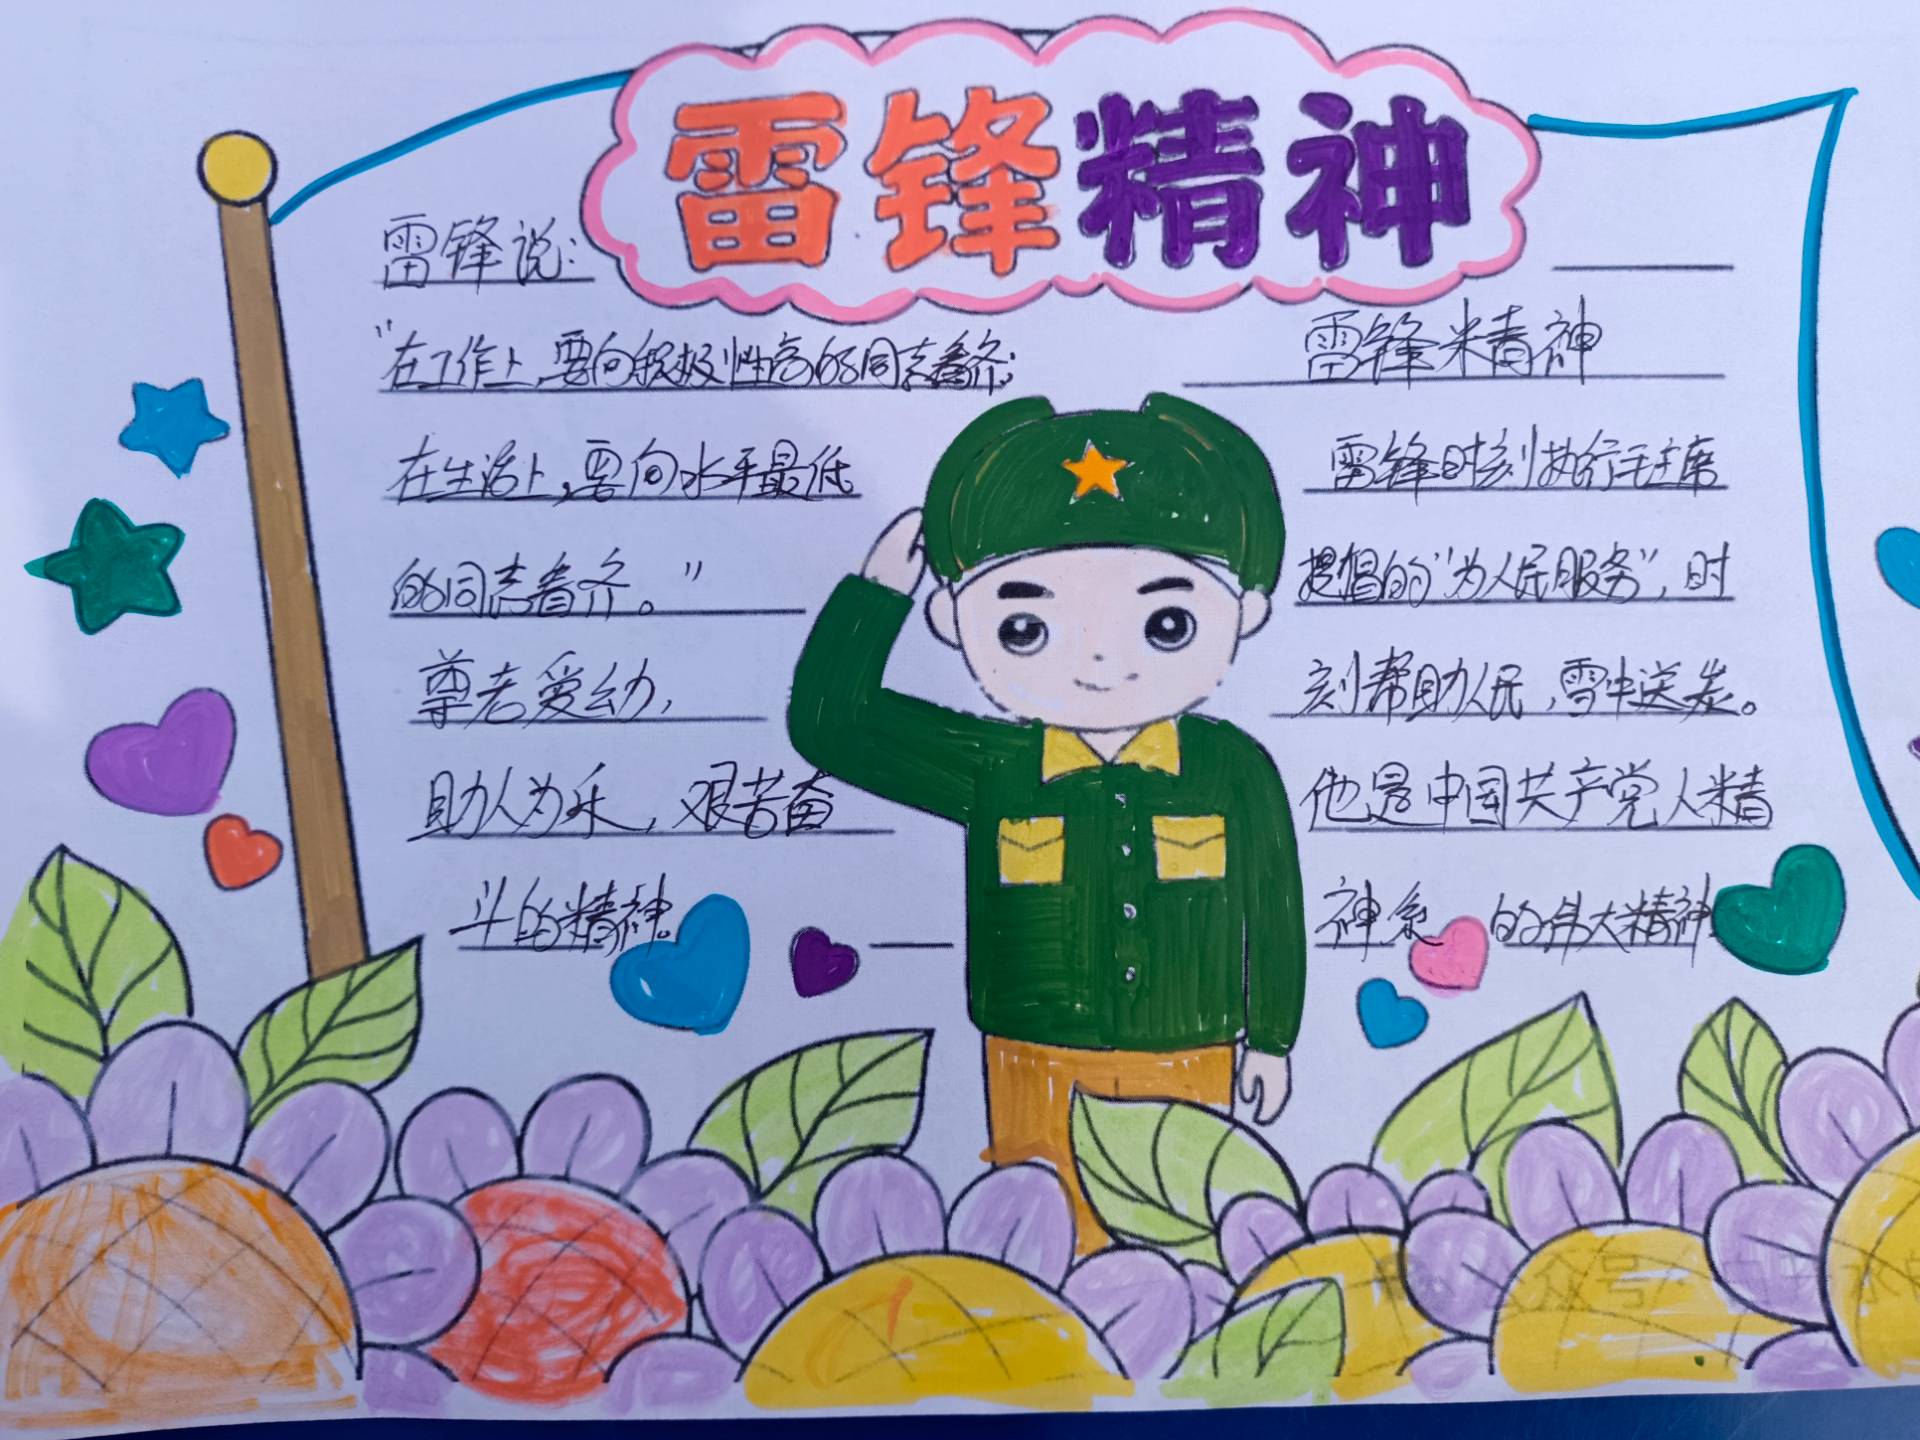 雷锋精神
雷锋说：
"在工作上，要向积极性高的同志看齐；
在生活上，要向水平最低
的同志看齐。"
尊老爱幼，
助人为乐，艰苦奋
斗的精神。
雷锋精神
雷锋时刻执行毛主席
提倡的"为人民服务"，时
刻帮助人民，雪中送炭。
他是中国共产党人精
神系 的伟大精神
公众号